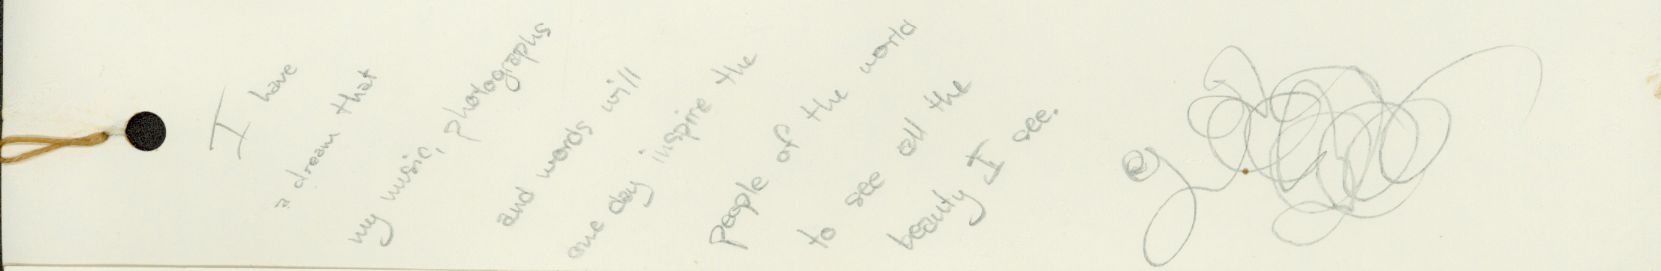 I have
a dream that
my music, photographs
and words will
one day inspire the
people of the world
to see all the
beauty I see.